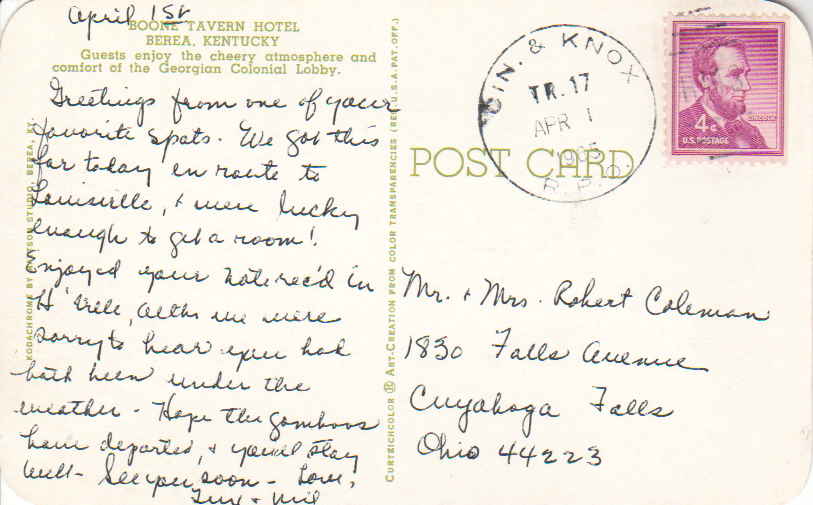 April 1st
BOONE TAVERN HOTEL
BEREA, KENTUCKY
Guests enjoy the cheery atmosphere and
comfort of the Georgian Colonial Lobby.
Greetings from one of your
favorite spots. We got this
far today en route to
Louisville, & were lucky
enough to get a room!
Enjoyed your note rec'd in
H'ville, altho we were
sorry to hear you had
both been under the
weather - Hope the
have departed, & you'll stay
well - See you soon - Love,
& Mil
KODACHROME BY STUDIO, BEREA, KY.
CURTEICHCOLOR ® ART-CREATION FROM COLOR TRANSPARENCIES (REG. U.S.A. PAT. OFF.)
CIN. & KNOX
TR. 17
APR 1
1965
R.P.O.
4¢
LINCOLN
U.S. POSTAGE
POST CARD
Mr. & Mrs. Robert Coleman
1830 Falls Avenue
Cuyahoga Falls
Ohio 44223